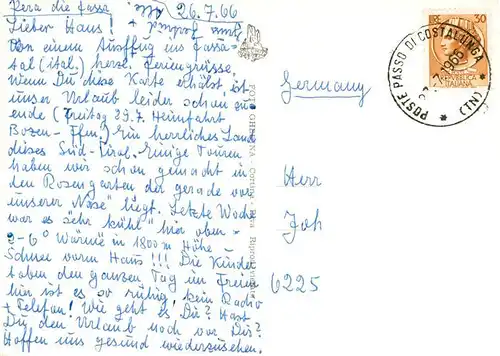 Pera di Fassa 26.7.66
Lieber Hans!
Von einem Ausflug ins Fassa-
tal (ital.) herzl. Feriengrüsse.
Wenn Du diese Karte erhälst ist
unser Urlaub leider schon zu
ende (Freitag 29.7. Heimfahrt
Bozen - Ffm.) Ein herrliches Land
dieses Süd-Tirol. Einige Touren
haben wir schon gemacht in
den Rosengarten der gerade vor
unserer "Nase" liegt. Letzte Woche
war es "sehr kühl" hier oben -
2-6° Wärme in 1800 m Höhe -
Schnee vorm Haus!!! Die Kinder
toben den ganzen Tag im Freien
hier ist es so ruhig kein Radio
+ Telefon! Wie geht es Dir? Hast
Du den Urlaub noch vor Dir?
Hoffen uns gesund wiederzusehen.
Germany
Herr
Joh
6225
POSTE PASSO DI COSTALUNGA (TN)
30
REPUBBLICA
ITALIANA